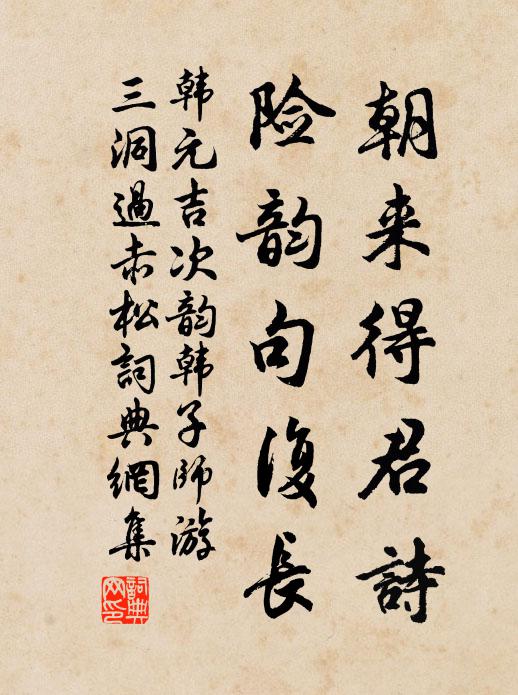 朝来得君詩
险韵句復長
韩元吉次韵韩子师游
三洞過赤松詞典網集
詞典網印